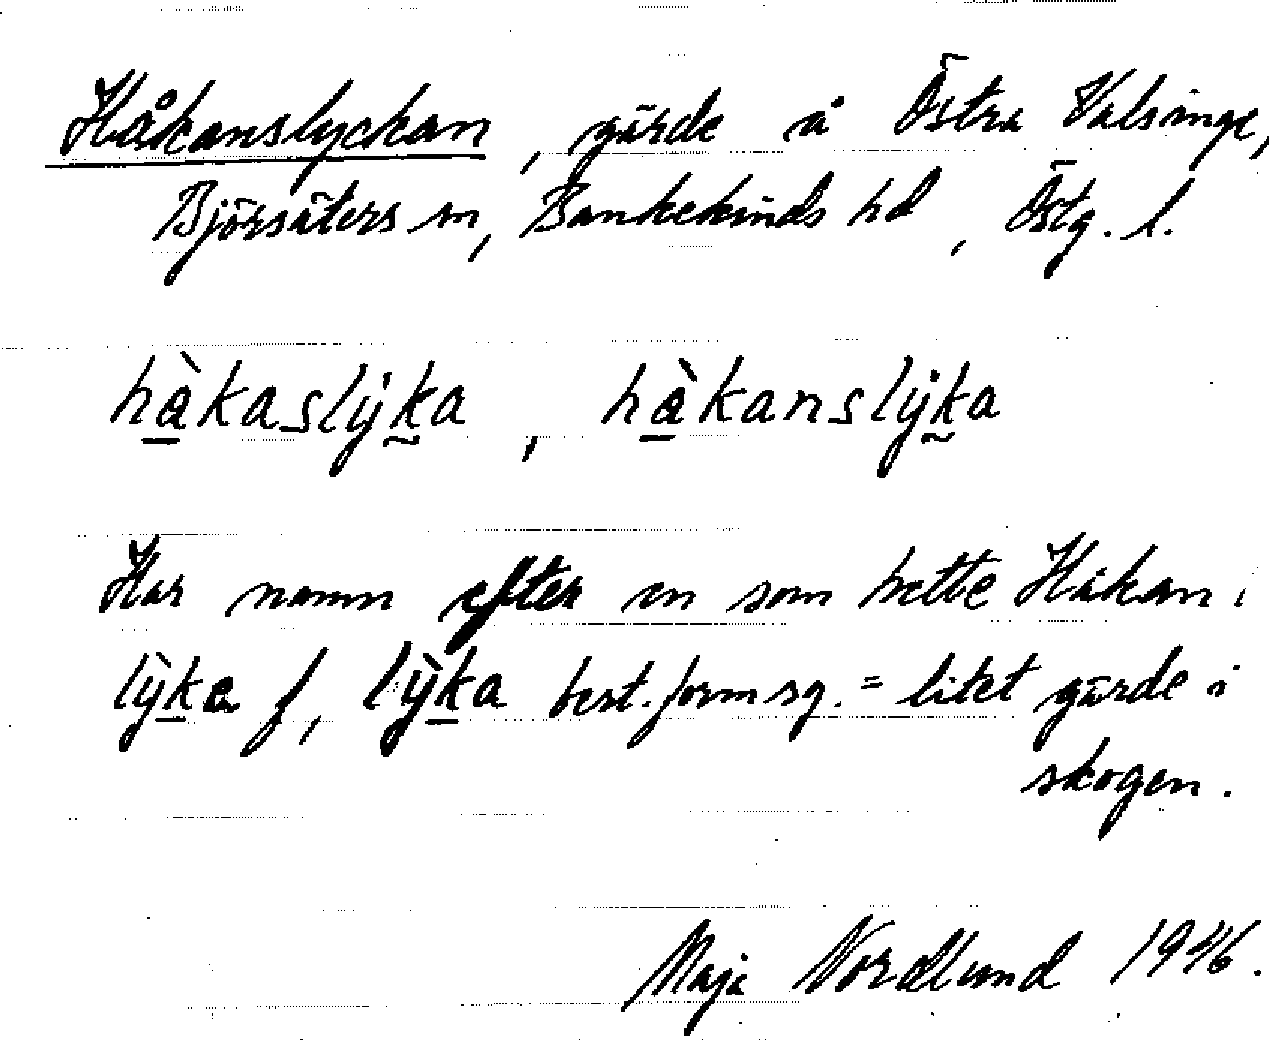 Håkanslyckan, gärde å Östra Valsinge,
Björsäters sn, Bankekinds hd, Östg. l.
hàkaslyka, hàkanslyka
Har namn efter en som hette Håkan.
lỳka f, lỳka best. form sg. = litet gärde i
skogen.
Maja Nordlund 1946.